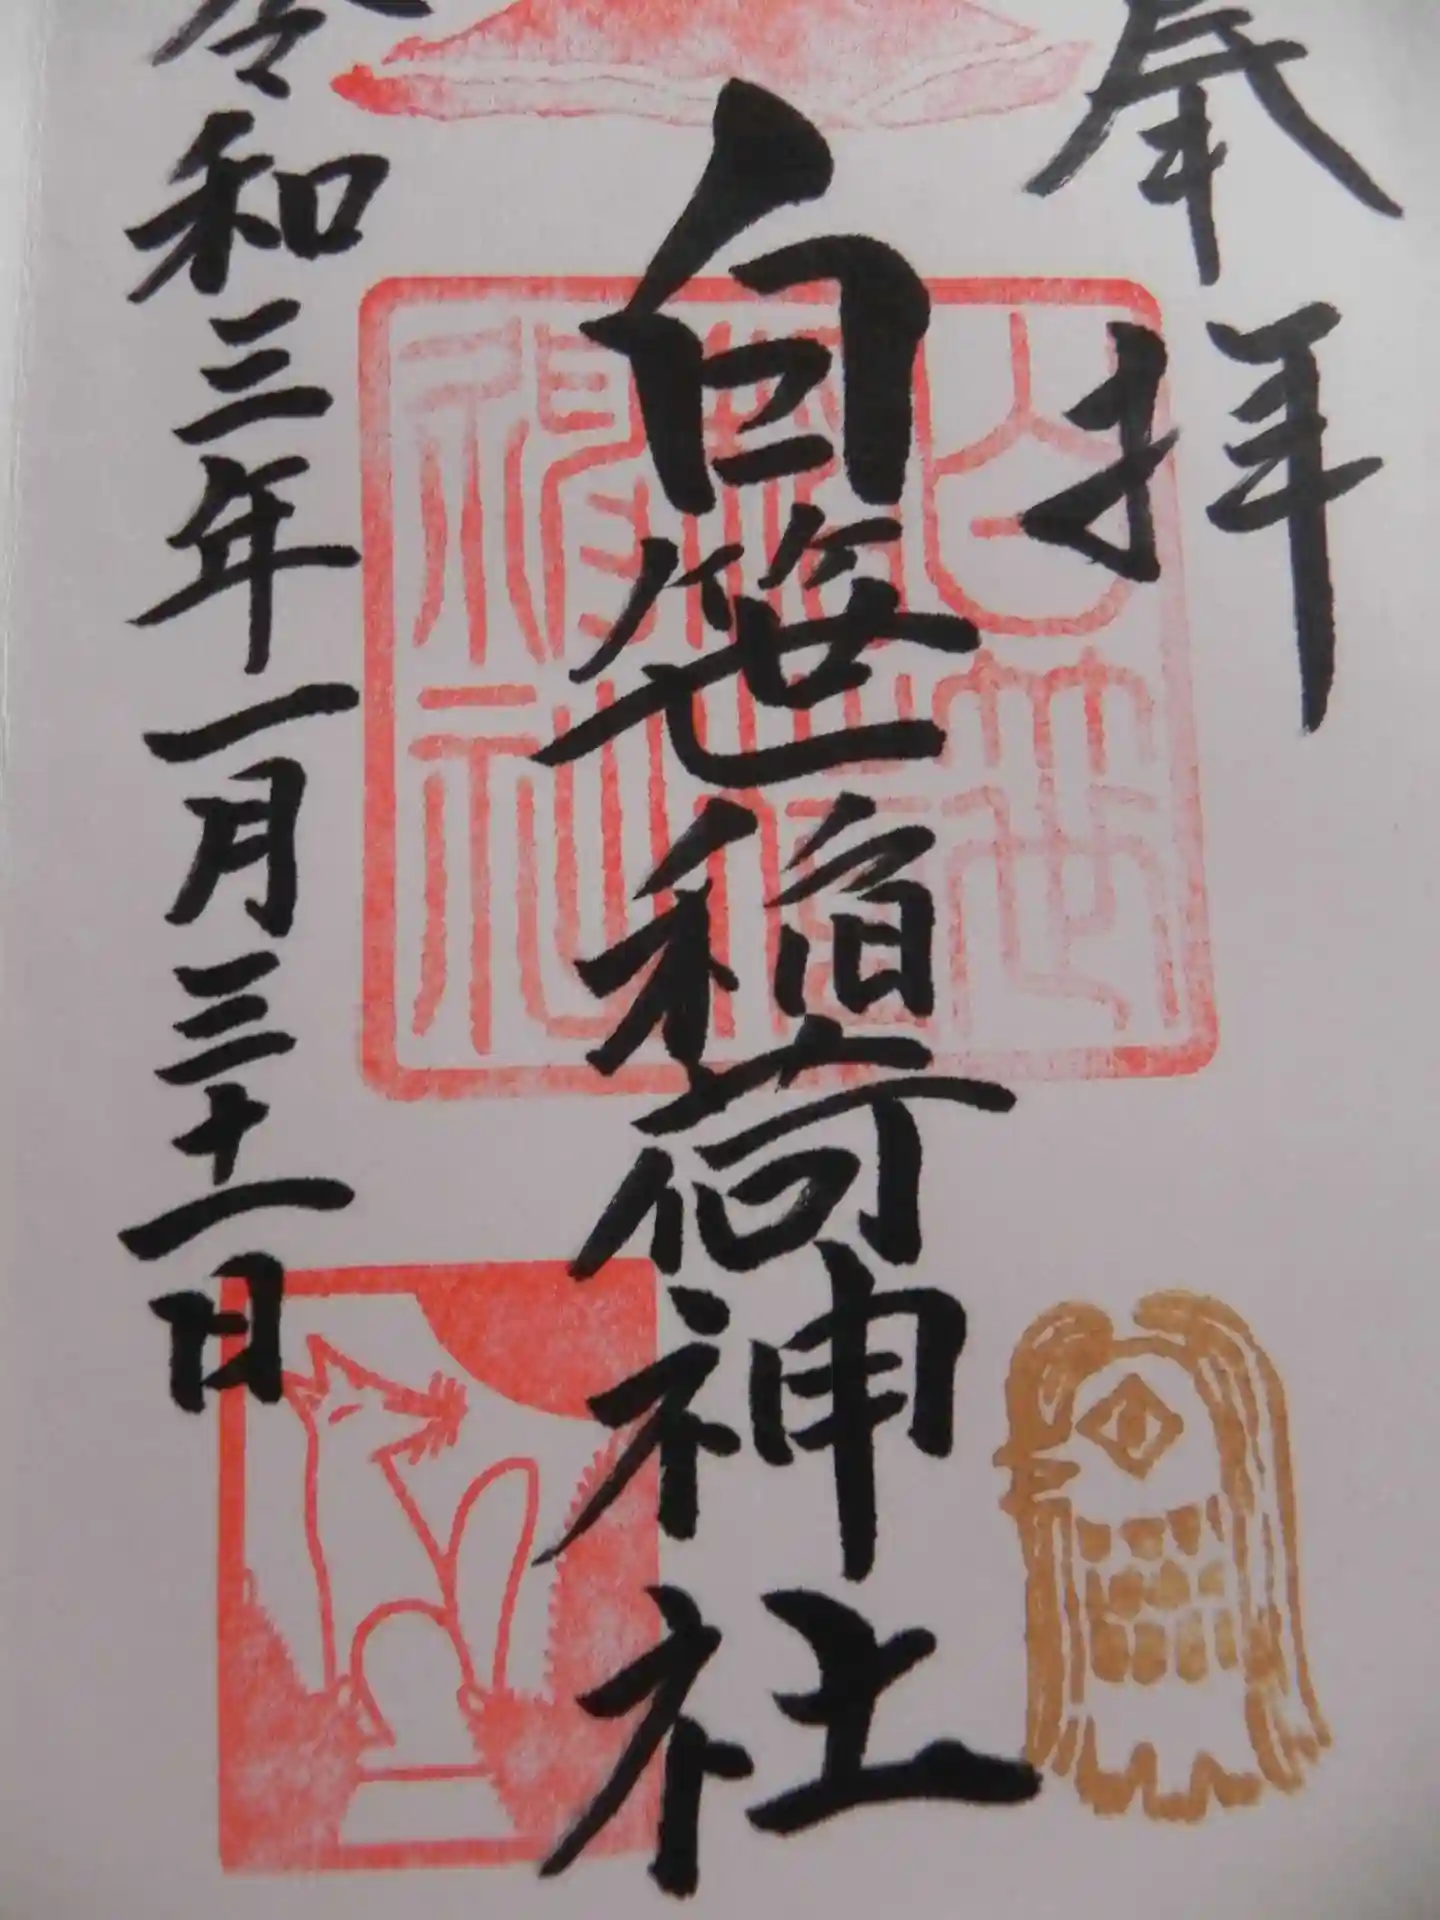 奉拝
白笹稲荷神社
令和三年一月三十一日
白笹
稲荷
神社